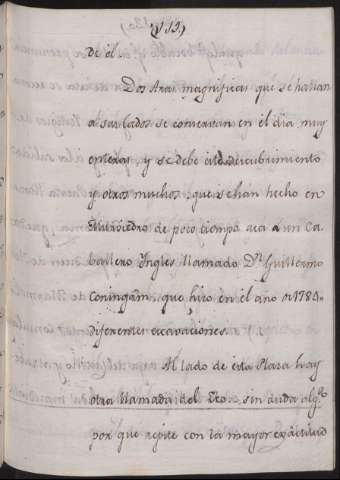 (111,)
de él.
Dos Aras magnificas que se hallan
a sus lados se conservan en el dia muy
enteras, y se debe su descubrimiento
y otros muchos, que se han hecho en
Murviedro de poco tiempo aca a un Ca-
ballero Ingles llamado Dn. Guillermo
Coningam, que hizo en el año 1785.
diferentes excavaciones.
Al lado de esta Plaza hay
otra llamada del Eco, sin duda alg.a
por que repite con la mayor exâctitud